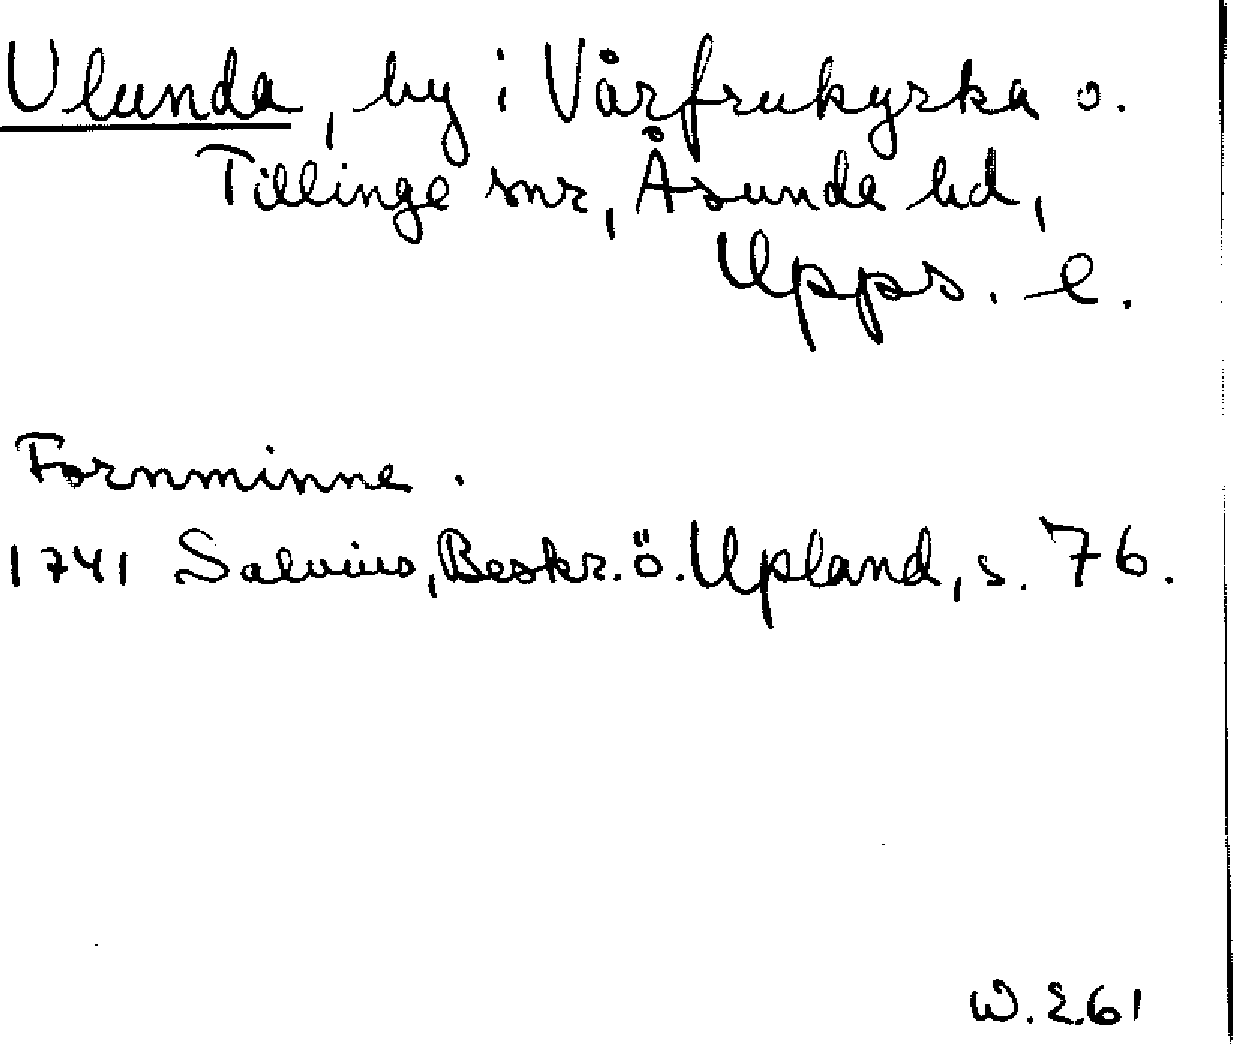 Ulunda, by i Vårfrukyrka o.
Tillinge snr, Åsunda hd,
Upps. l.
Fornminne.
1741 Salvius, Beskr. ö. Upland, s. 76.
W. E61